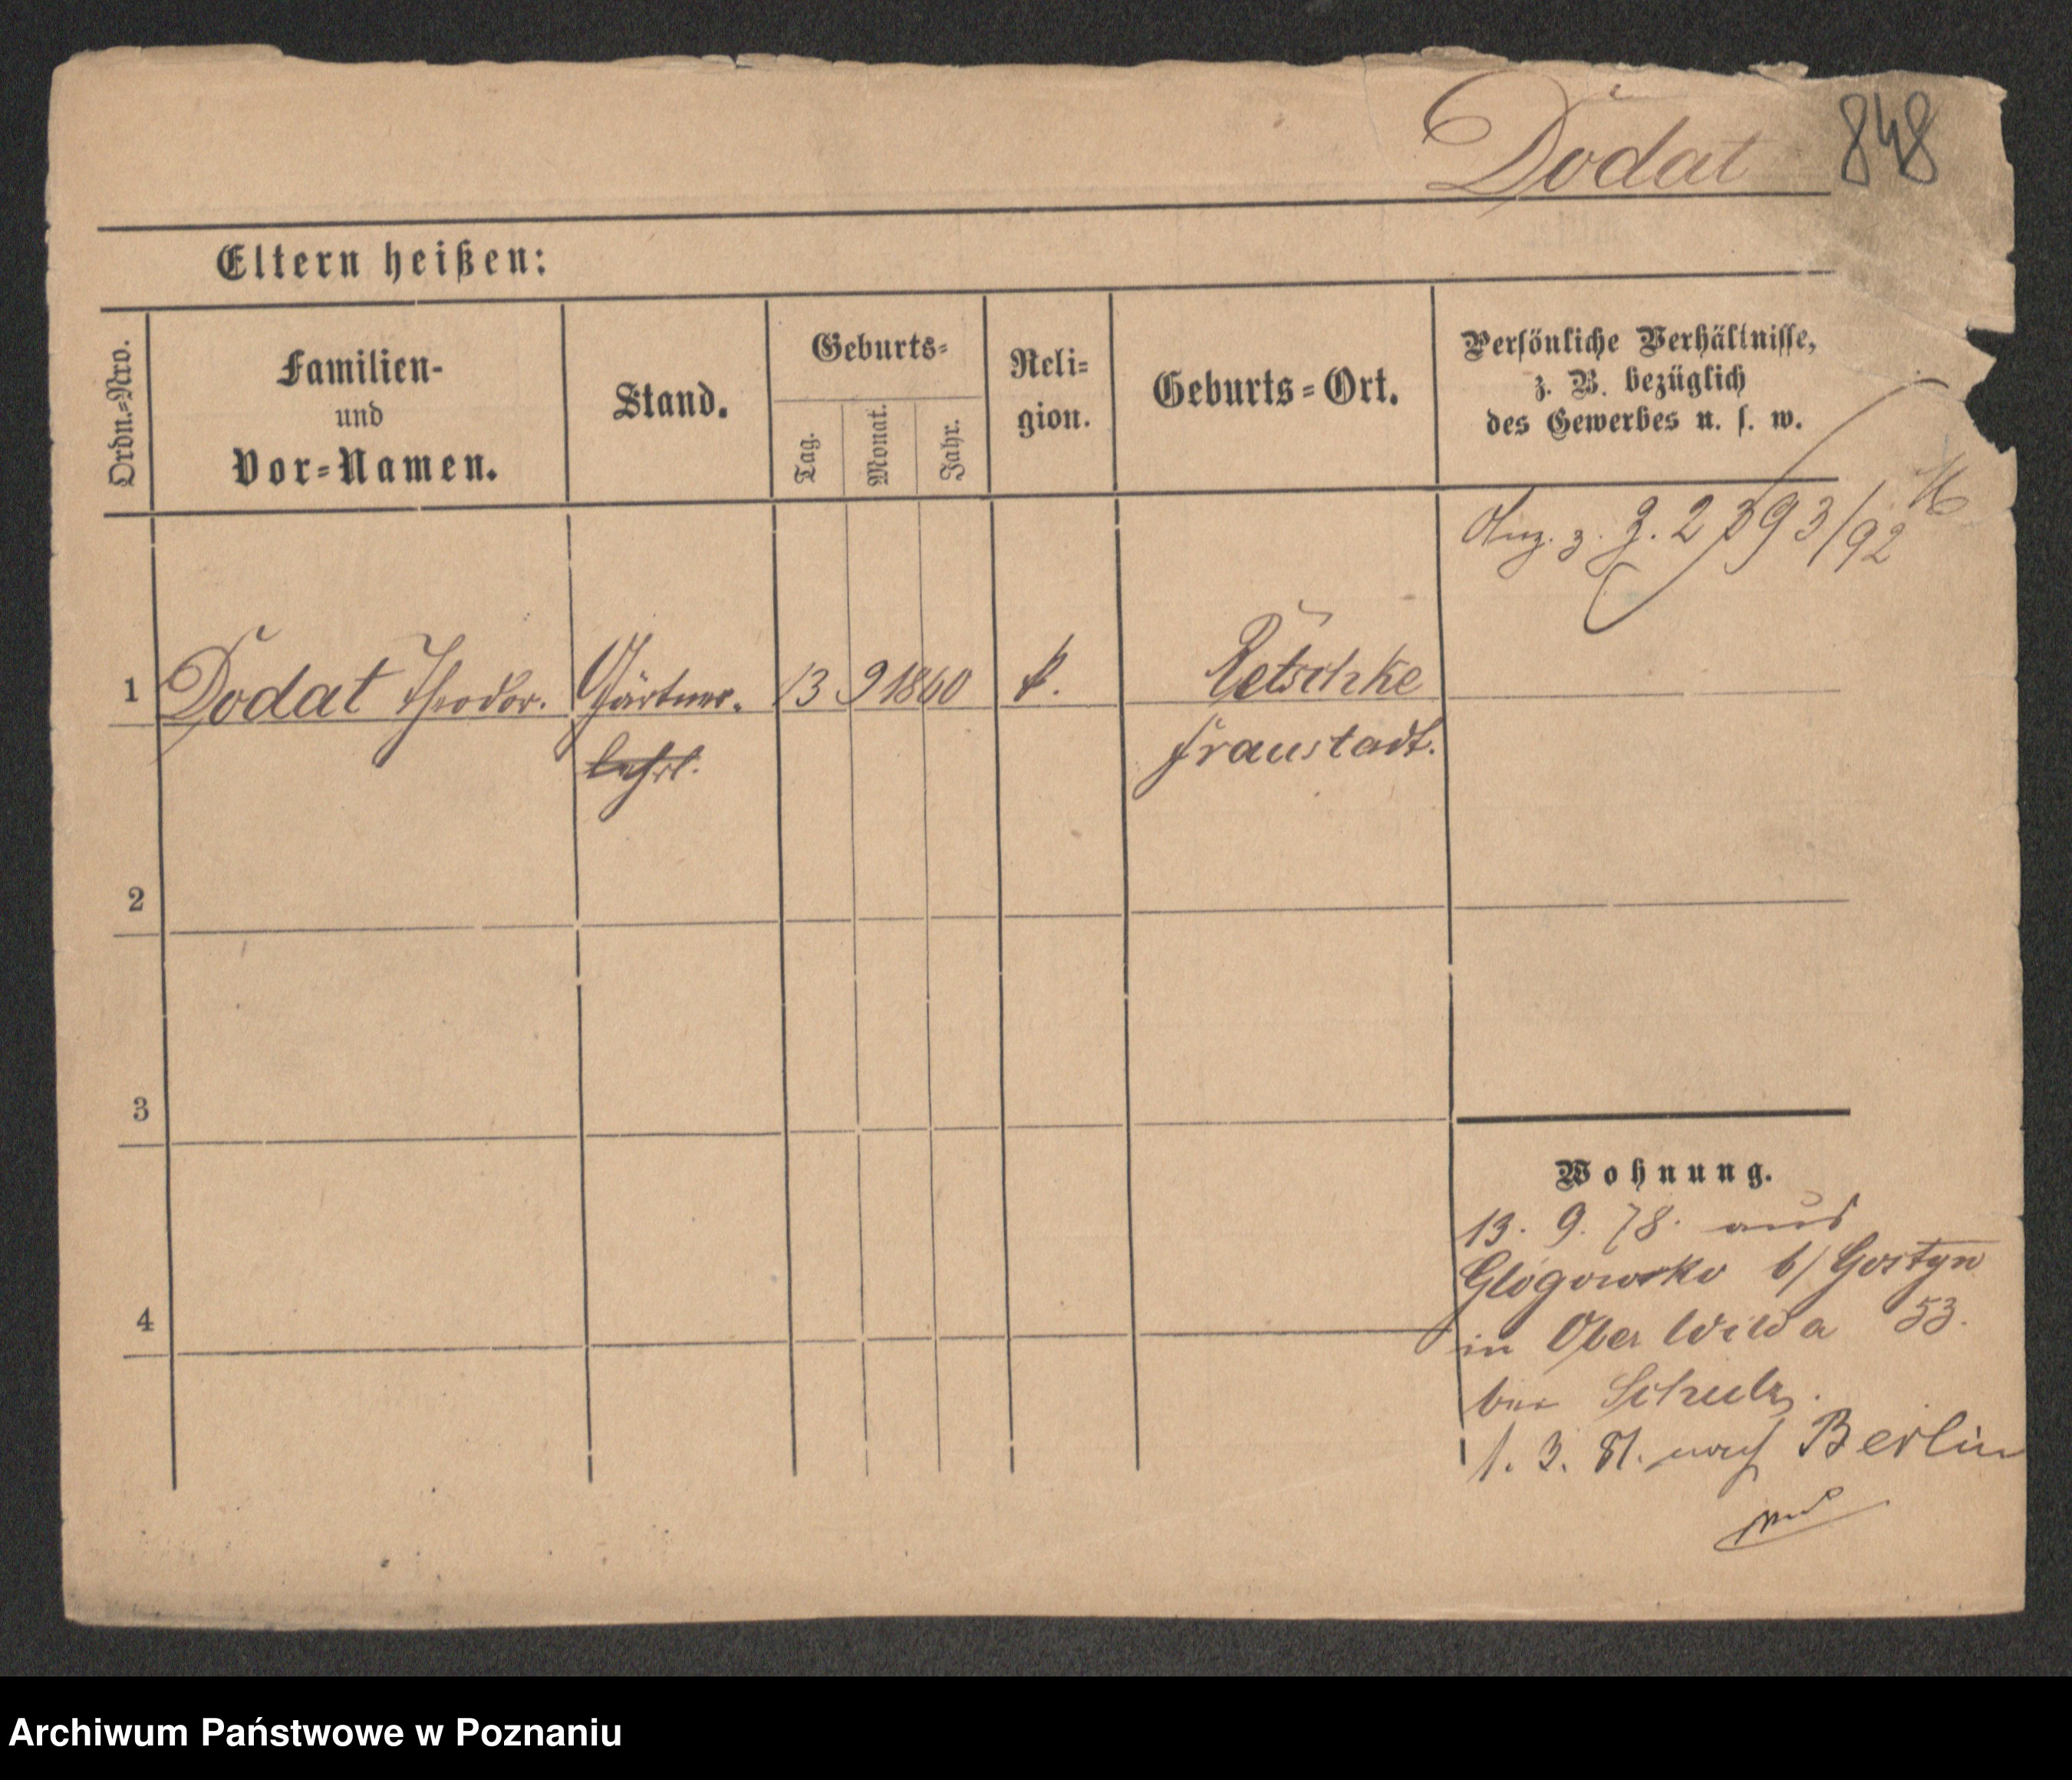 Dodat 848
Eltern heißen:
Ordn.-Nro.
Familien-
und
Vor-Namen.
Stand.
Geburts-
Tag.
Monat.
Jahr.
Reli-
gion.
Geburts-Ort.
Persönliche Verhältnisse,
z. B. bezüglich
des Gewerbes u. s. w.
z. J. 2393/92
1 Dodat Theodor. Gärtner. 13 9 1860 k. Retschke
lehrl. Fraustadt.
2
3
4
Wohnung.
13. 9. 78. aus
Glogowko b/ Gostyn
in Ober Wilda 53.
bei Schulz.
1. 3. 81. nach Berlin
Archiwum Państwowe w Poznaniu